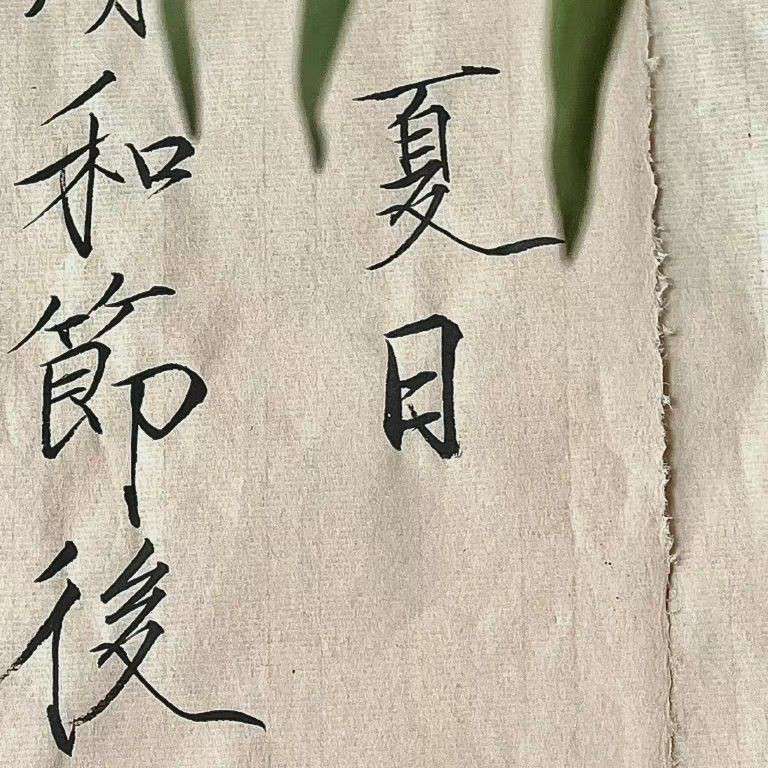 夏日
和節後